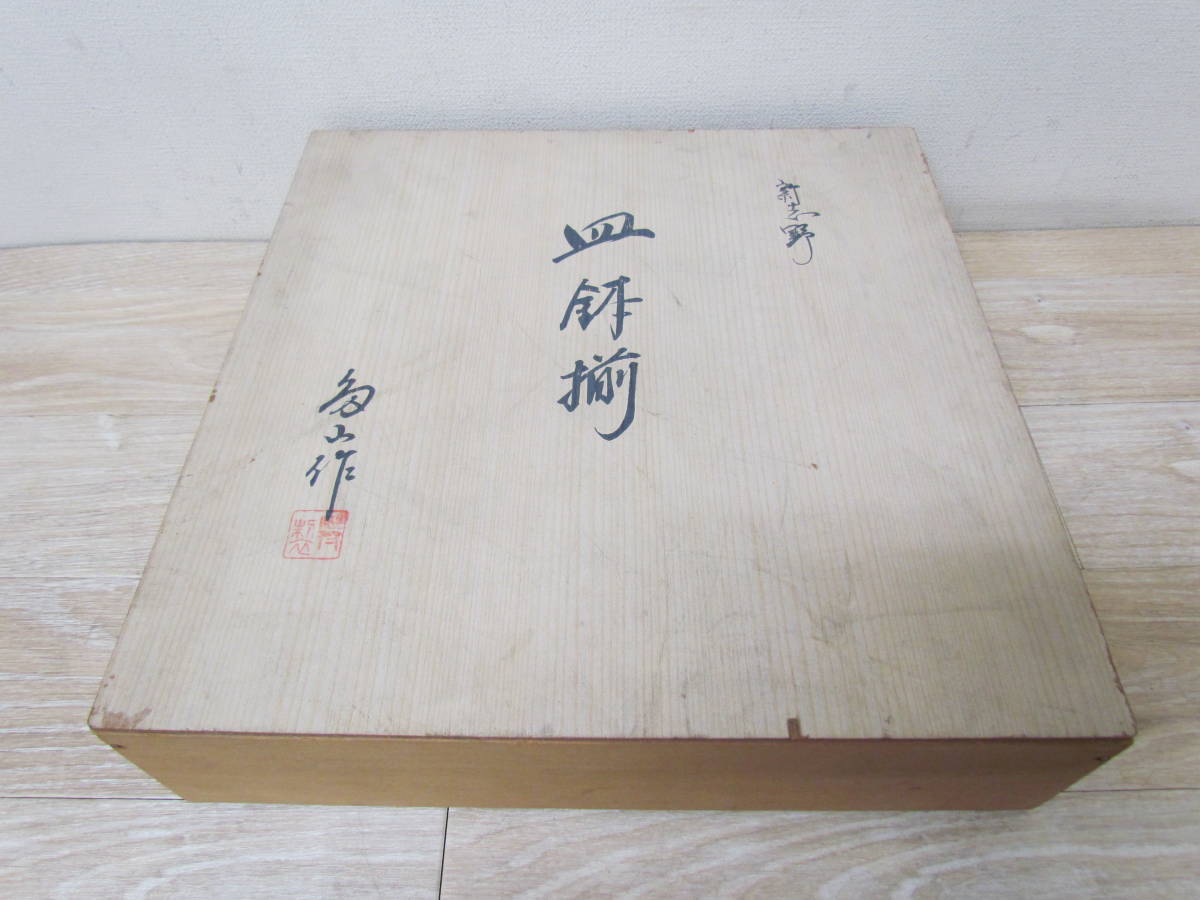 新志野
皿鉢揃
山作